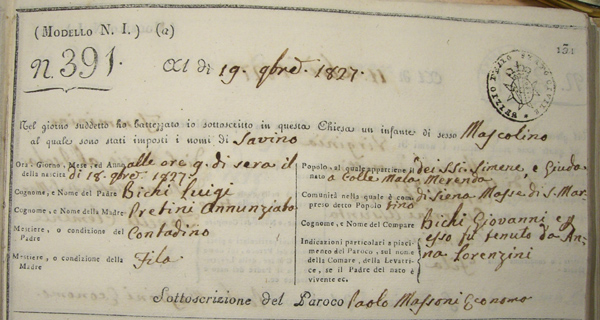 (MODELLO N. I.) (a)
131
n. 391.
Al di 19 9bre. 1827.
Nel giorno suddetto ho battezzato io sottoscritto in questa Chiesa un infante di sesso Mascolino
al quale sono stati imposti i nomi di Savino
Ora, Giorno, Mese ed Anno alle ore 9. di sera il
della nascita di 18. 9bre. 1827.
Cognome, e Nome del Padre Bichi Luigi
Cognome, e Nome della Madre Pretini Annunziata
Mestiere, o condizione del Contadino
Padre
Mestiere, o condizione della Fila
Madre
Popolo, al quale appartiene il dei SSci. Simone, e Giuda
nato a Colle Mala Merenda
Comunità nella quale è com- di Siena Masse di S. Mar-
preso detto Popolo tino
Cognome, e Nome del Compare Bichi Giovanni e p
esso fu tenuto da An-
na Lorenzini
Indicazioni particolari a placi-
mento del Paroco, sul nome
della Comare, della Levatri-
ce, se il Padre del nato è
vivente ec.
Sottoscrizione del Paroco Paolo Massoni Economo